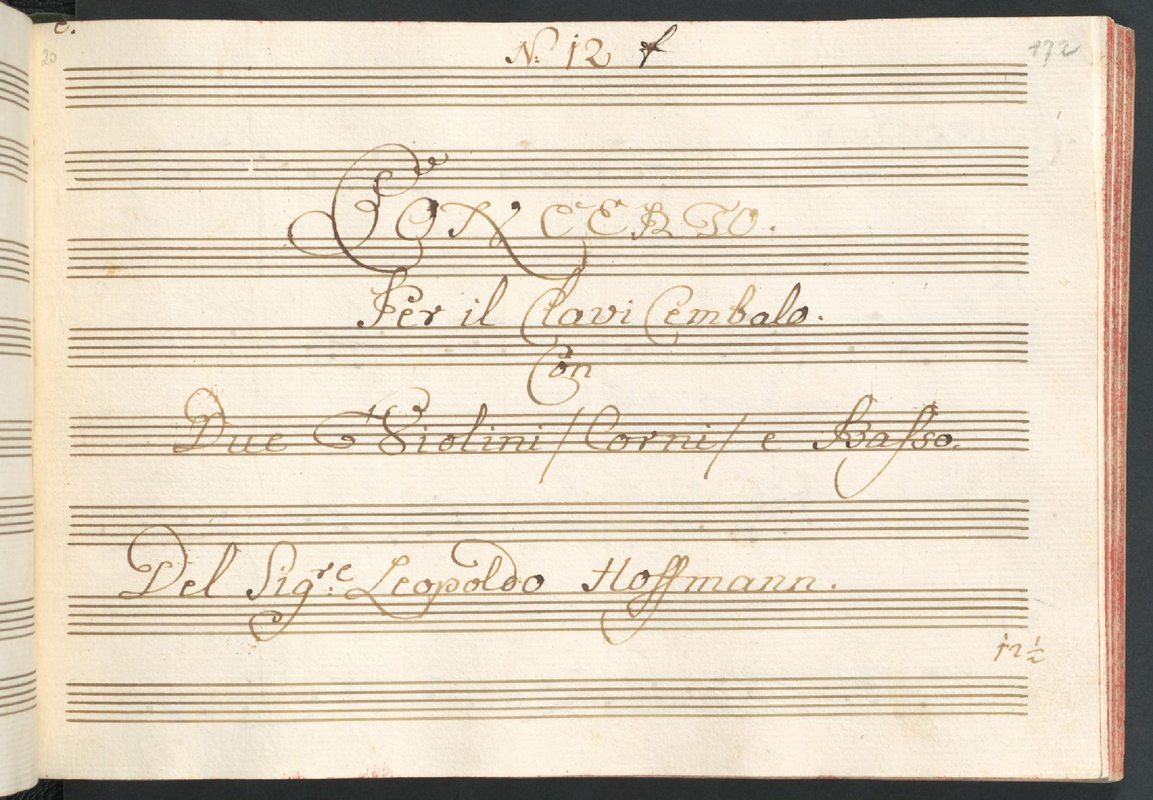 e.
20
N: 12
172
CONCERTO.
Per il Clavi Cembalo.
Con
Due Violini / Corni / e Basso.
Del Sigre: Leopoldo Hoffmann.
12 1/2